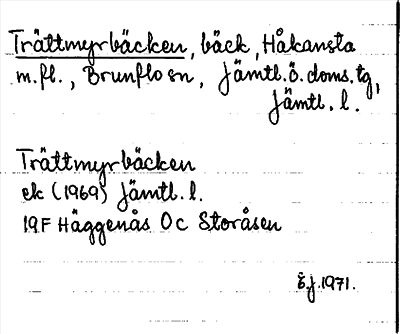 Trättmyrbäcken, bäck, Håkansta
m.fl., Brunflo sn, Jämtl. ö. doms. tg,
Jämtl. l.
Trättmyrbäcken
ek (1969) Jämtl. l.
19F Häggenås Oc Storåsen
1971.